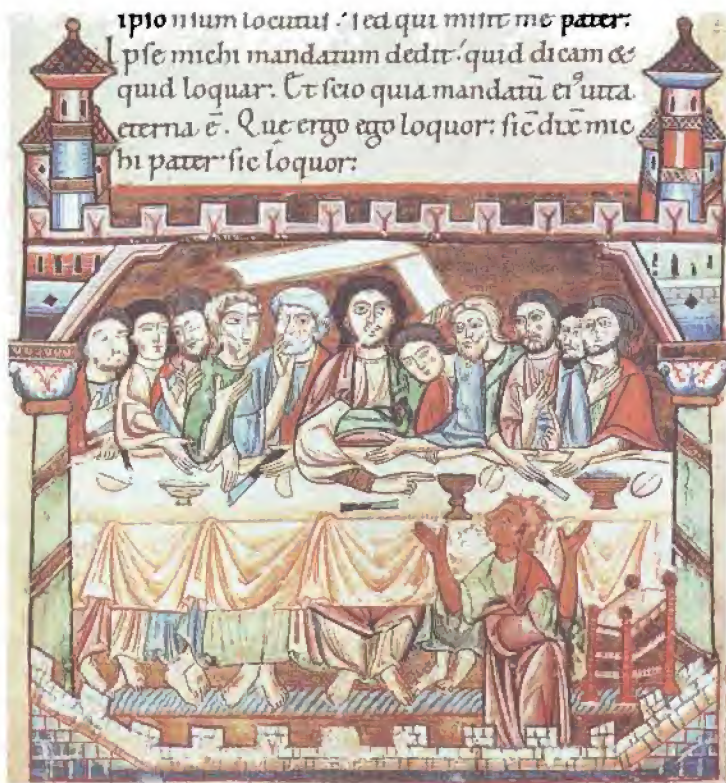 ipso n sum locutus. sed qui misit me pater:
Ipse michi mandatum dedit. quid dicam &
quid loquar. Et scio quia mandatū ei᷒ uita
eterna ē. Que ergo ego loquor: sic̄ dix̄ mic
hi pater sic loquor: